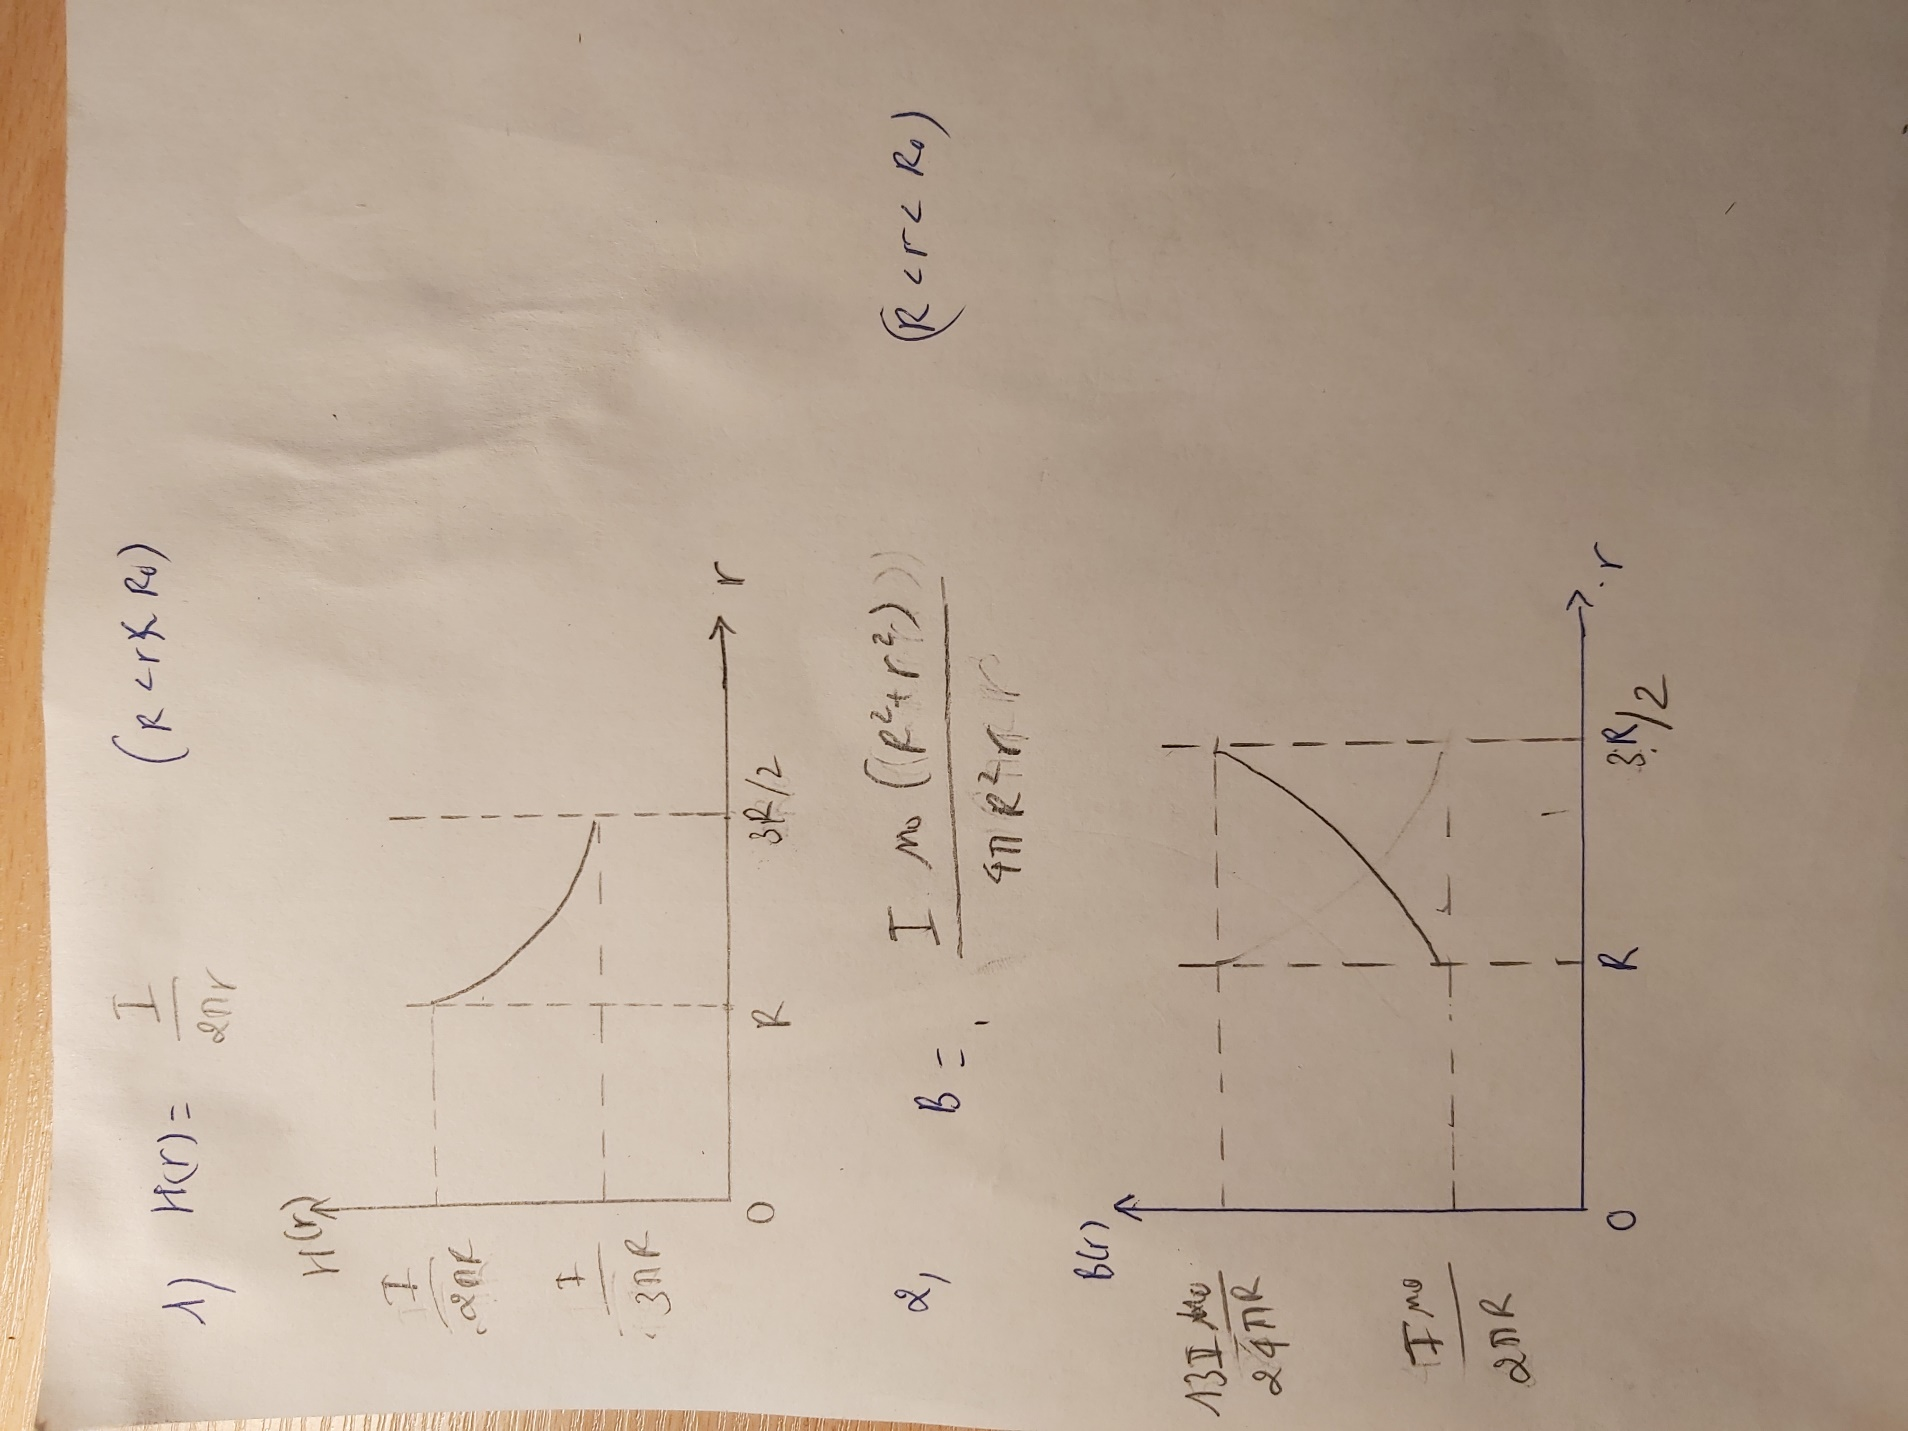 1) H(r) = I / 2πr (R < r < R₀)
H(r)
I / 2πR
I / 3πR
0 R 3R/2 r
2, B = I μ₀ ((R² + r²)) / 4π R² r (R < r < R₀)
B(r)
13 I μ₀ / 24πR
I μ₀ / 2πR
0 R 3R/2 r